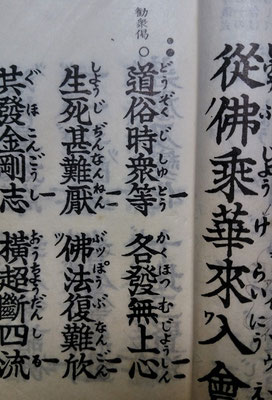 從佛乘華來入會
勸衆偈
道俗時衆等 各發無上心
生死甚難厭 佛法復難欣
共發金剛志 橫超斷四流